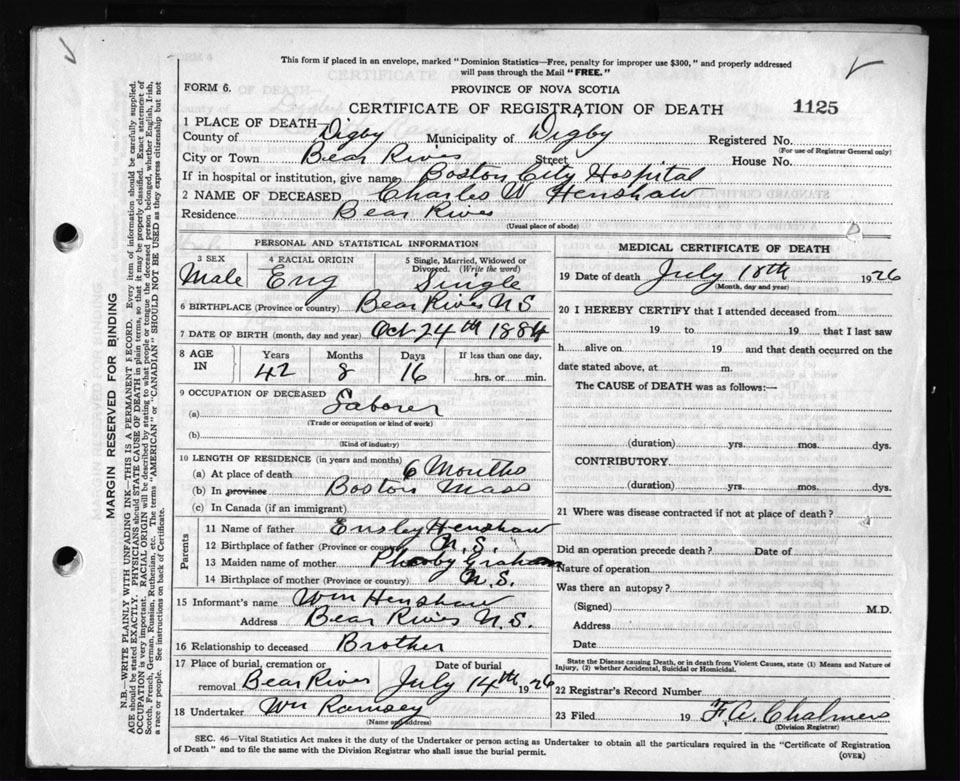 This form if placed in an envelope, marked "Dominion Statistics—Free, penalty for improper use $300," and properly addressed
will pass through the Mail "FREE."
FORM 6.
PROVINCE OF NOVA SCOTIA
CERTIFICATE OF REGISTRATION OF DEATH
1125
1 PLACE OF DEATH—
County of Digby Municipality of Digby Registered No.
(For use of Registrar General only)
City or Town Bear River Street House No.
If in hospital or institution, give name Boston City Hospital
2 NAME OF DECEASED Charles W Henshaw
Residence Bear River
(Usual place of abode)
PERSONAL AND STATISTICAL INFORMATION
3 SEX 4 RACIAL ORIGIN 5 Single, Married, Widowed or Divorced. (Write the word)
Male Eng Single
6 BIRTHPLACE (Province or country) Bear River N S
7 DATE OF BIRTH (month, day and year) Oct 24th 1884
8 AGE IN Years Months Days If less than one day,
42 8 16 hrs. or min.
9 OCCUPATION OF DECEASED
(a) Laborer
(Trade or occupation or kind of work)
(b)
(Kind of industry)
10 LENGTH OF RESIDENCE (in years and months)
(a) At place of death 6 Months
(b) In province Boston Mass
(c) In Canada (if an immigrant)
Parents
11 Name of father Ensley Henshaw
12 Birthplace of father (Province or country) N.S.
13 Maiden name of mother Phoeby Graham
14 Birthplace of mother (Province or country) N.S.
15 Informant's name Wm Henshaw
Address Bear River N.S.
16 Relationship to deceased Brother
17 Place of burial, cremation or removal Date of burial
Bear River July 14th 1926
18 Undertaker Wm Ramsey
(Name and address)
MEDICAL CERTIFICATE OF DEATH
19 Date of death July 10th 1926
(Month, day and year)
20 I HEREBY CERTIFY that I attended deceased from
19 to 19 that I last saw
h alive on 19 and that death occurred on the
date stated above, at m.
The CAUSE of DEATH was as follows:—
(duration) yrs. mos. dys.
CONTRIBUTORY
(duration) yrs. mos. dys.
21 Where was disease contracted if not at place of death?
Did an operation precede death? Date of
Nature of operation
Was there an autopsy?
(Signed) M.D.
Address
Date
State the Disease causing Death, or in death from Violent Causes, state (1) Means and Nature of
Injury, (2) whether Accidental, Suicidal or Homicidal.
22 Registrar's Record Number
23 Filed 19 F. A. Chalmers
(Division Registrar)
SEC. 46—Vital Statistics Act makes it the duty of the Undertaker or person acting as Undertaker to obtain all the particulars required in the "Certificate of Registration
of Death" and to file the same with the Division Registrar who shall issue the burial permit.
(OVER)
MARGIN RESERVED FOR BINDING
N.B.—WRITE PLAINLY WITH UNFADING INK—THIS IS A PERMANENT RECORD. Every item of information should be carefully supplied.
AGE should be stated EXACTLY. PHYSICIANS should STATE CAUSE OF DEATH in plain terms, so that it may be properly classified. Exact statement of
OCCUPATION is very important. RACIAL ORIGIN will be described by stating to what people or tongue the deceased person belonged, whether English, Irish,
Scotch, French, German, Russian, Ruthenian, etc. The terms "AMERICAN" or "CANADIAN" SHOULD NOT BE USED as they express citizenship but not
a race or people. See instructions on back of Certificate.